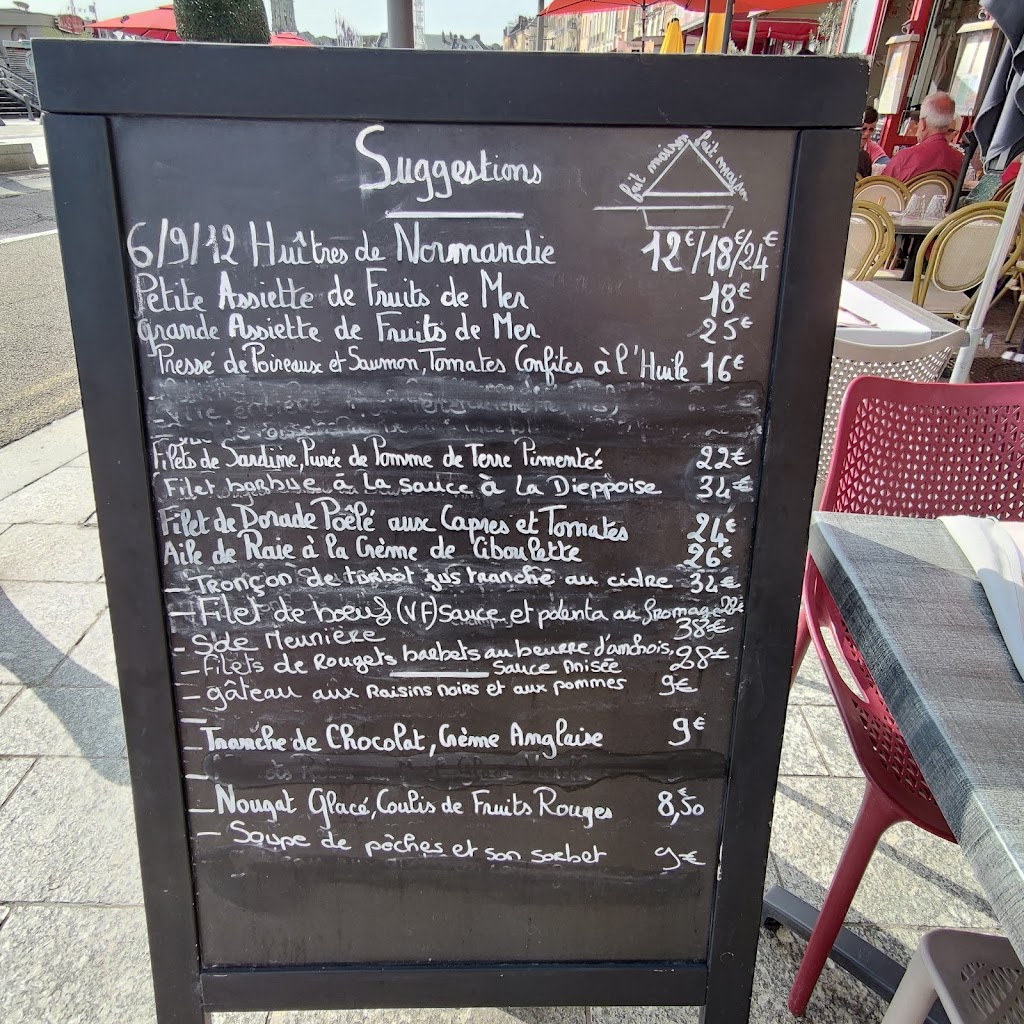 Suggestions
fait maison fait maison
6/9/12 Huîtres de Normandie 12€/18€/24€
Petite Assiette de Fruits de Mer 18€
Grande Assiette de Fruits de Mer 25€
Pressé de Poireaux et Saumon, Tomates Confites à l'Huile 16€
Filets de Sardine, Purée de Pomme de Terre Pimenteé 22€
Filet barbue à la sauce à La Dieppoise 34€
Filet de Dorade Poêlé aux Capres et Tomates 24€
Aile de Raie à la Crème de Ciboulette 26€
- Tronçon de turbot jus tranché au cidre 32€
- Filet de boeuf (VF) sauce et polenta au fromage 28€
- Sole Meunière 38€
- Filets de Rougets barbets au beurre d'anchois, 28€
Sauce Anisée
- gâteau aux Raisins noirs et aux pommes 9€
-
- Tranche de Chocolat, Crème Anglaise 9€
-
- Nougat Glacé, Coulis de Fruits Rouges 8,50€
- Soupe de pêches et son sorbet 9€